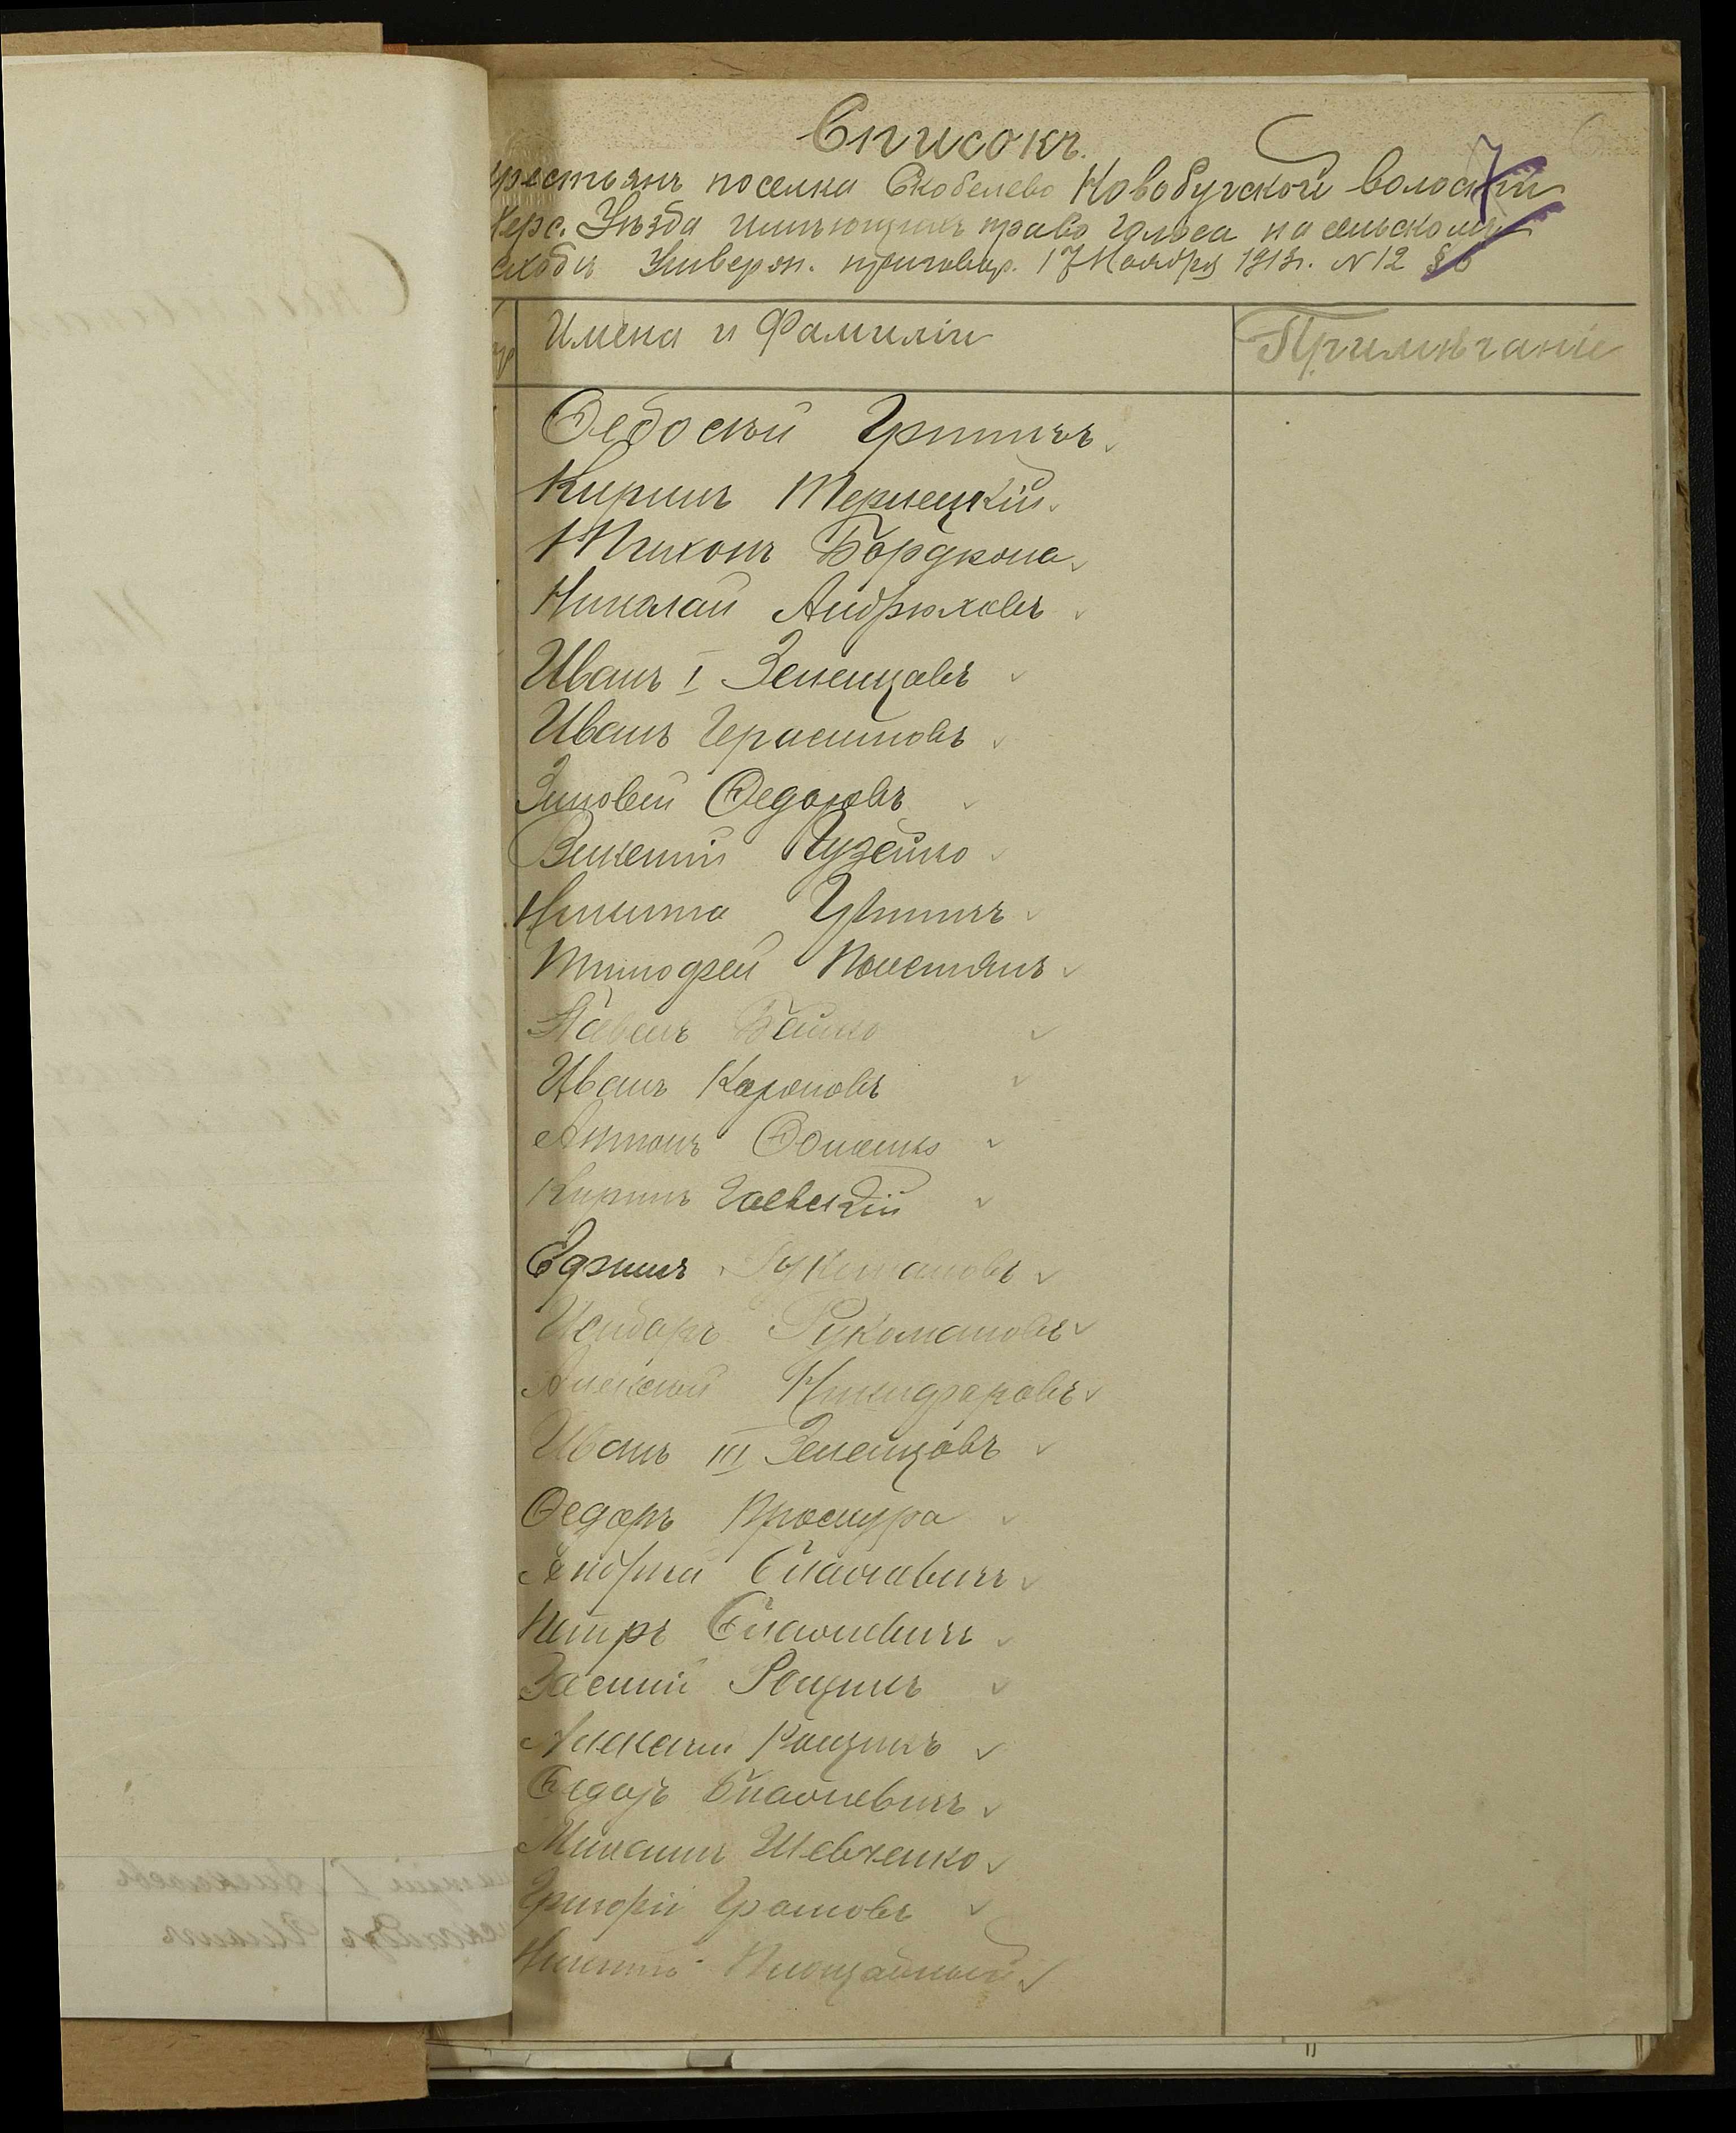 Списокъ
крестьянъ поселка Скобелево Новобугской волости
Херс. Уѣзда имѣющихъ право голоса на сельскомъ
сходѣ Универ. приговор. 17 Ноября 1913 г. N 12 §6
7
Имена и Фамиліи
Примѣчаніе
Ѳедосѣй
Кирилъ Тернецкій
Тихонъ
Николай Андрюховъ
Иванъ I Зеленцовъ
Иванъ Герасимовъ
Зиновей Ѳедоровъ
Викентій Гузейко
Никита
Тимофей
Павелъ Бойко
Иванъ Короповъ
Антонъ
Кирилъ Гаевскій
Ефимъ Рукомановъ
Исидоръ Рукомановъ
Алексѣй Никифоровъ
Иванъ III Зеленцовъ
Ѳедоръ Проскура
Андрей Спасиевичъ
Петръ Спасиевичъ
Василій Рощинъ
Алексѣй Рощинъ
Ѳедоръ Спасиевичъ
Михаилъ Шевченко
Григорій Громовъ
Никита